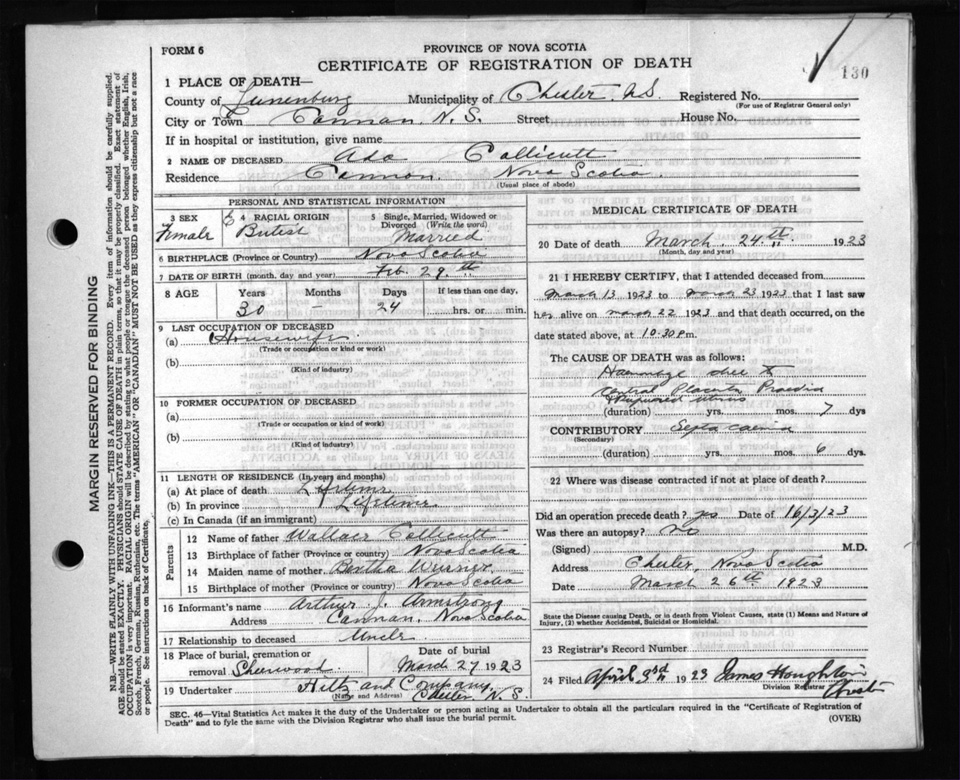 FORM 6
PROVINCE OF NOVA SCOTIA
CERTIFICATE OF REGISTRATION OF DEATH
130
1 PLACE OF DEATH—
County of Lunenburg Municipality of Chester N.S. Registered No.
(For use of Registrar General only)
City or Town Cannan, N.S. Street House No.
If in hospital or institution, give name
2 NAME OF DECEASED Ada Collicutt
Residence Cannon. Nova Scotia.
(Usual place of abode)
PERSONAL AND STATISTICAL INFORMATION
3 SEX Female
4 RACIAL ORIGIN British
5 Single, Married, Widowed or Divorced (Write the word) Married
6 BIRTHPLACE (Province or Country) Nova Scotia
7 DATE OF BIRTH (month, day and year) Feb. 29th
8 AGE Years 30 Months — Days 24 If less than one day, hrs. or min.
9 LAST OCCUPATION OF DECEASED
(a) Housewife
(Trade or occupation or kind or work)
(b)
(Kind of industry)
10 FORMER OCCUPATION OF DECEASED
(a)
(Trade or occupation or kind or work)
(b)
(Kind of industry)
11 LENGTH OF RESIDENCE (In years and months)
(a) At place of death Lifetime
(b) In province Lifetime
(c) In Canada (if an immigrant)
Parents
12 Name of father Wallace Collicutt
13 Birthplace of father (Province or country) Nova Scotia
14 Maiden name of mother Bertha
15 Birthplace of mother (Province or country) Nova Scotia
16 Informant's name Arthur J. Armstrong
Address Cannan, Nova Scotia
17 Relationship to deceased Uncle
18 Place of burial, cremation or removal Sherwood
Date of burial March 27 1923
19 Undertaker Hiltz and Company Chester N.S.
(Name and Address)
MEDICAL CERTIFICATE OF DEATH
20 Date of death March 24th 1923
(Month, day and year)
21 I HEREBY CERTIFY, that I attended deceased from
March 13 1923 to March 23 1923 that I last saw
her alive on March 22 1923 and that death occurred, on the
date stated above, at 10.30 pm.
The CAUSE OF DEATH was as follows:
due to
Central Placenta Praevia
& Ruptured uterus
(duration) yrs. mos. 7 dys
CONTRIBUTORY
(Secondary)
(duration) yrs. mos. 6 dys
22 Where was disease contracted if not at place of death?
Did an operation precede death? yes Date of 16/3/23
Was there an autopsy? no
(Signed) M.D.
Address Chester, Nova Scotia
Date March 26th 1923
State the Disease causing Death, or in death from Violent Causes, state (1) Means and Nature of Injury, (2) whether Accidental, Suicidal or Homicidal.
23 Records Record Number
24 Filed April 3rd 1923 James Houghton
Division Registrar Chester
SEC. 46—Vital Statistics Act makes it the duty of the Undertaker or person acting as Undertaker to obtain all the particulars required in the "Certificate of Registration of
Death" and to fyle the same with the Division Registrar who shall issue the burial permit.
(OVER)
MARGIN RESERVED FOR BINDING
N.B.—WRITE PLAINLY WITH UNFADING INK—THIS IS A PERMANENT RECORD. Every item of information should be carefully supplied.
AGE should be stated EXACTLY. PHYSICIANS should STATE CAUSE OF DEATH in plain terms, so that it may be properly classified. Exact statement of
OCCUPATION is very important. RACIAL ORIGIN will be described by stating to what people or tongue the deceased person belonged whether English, Irish,
Scotch, French, German, Russian, Ruthenian, etc. The terms "AMERICAN" OR "CANADIAN" MUST NOT BE USED as they express citizenship but not a race
or people. See instructions on back of Certificate.